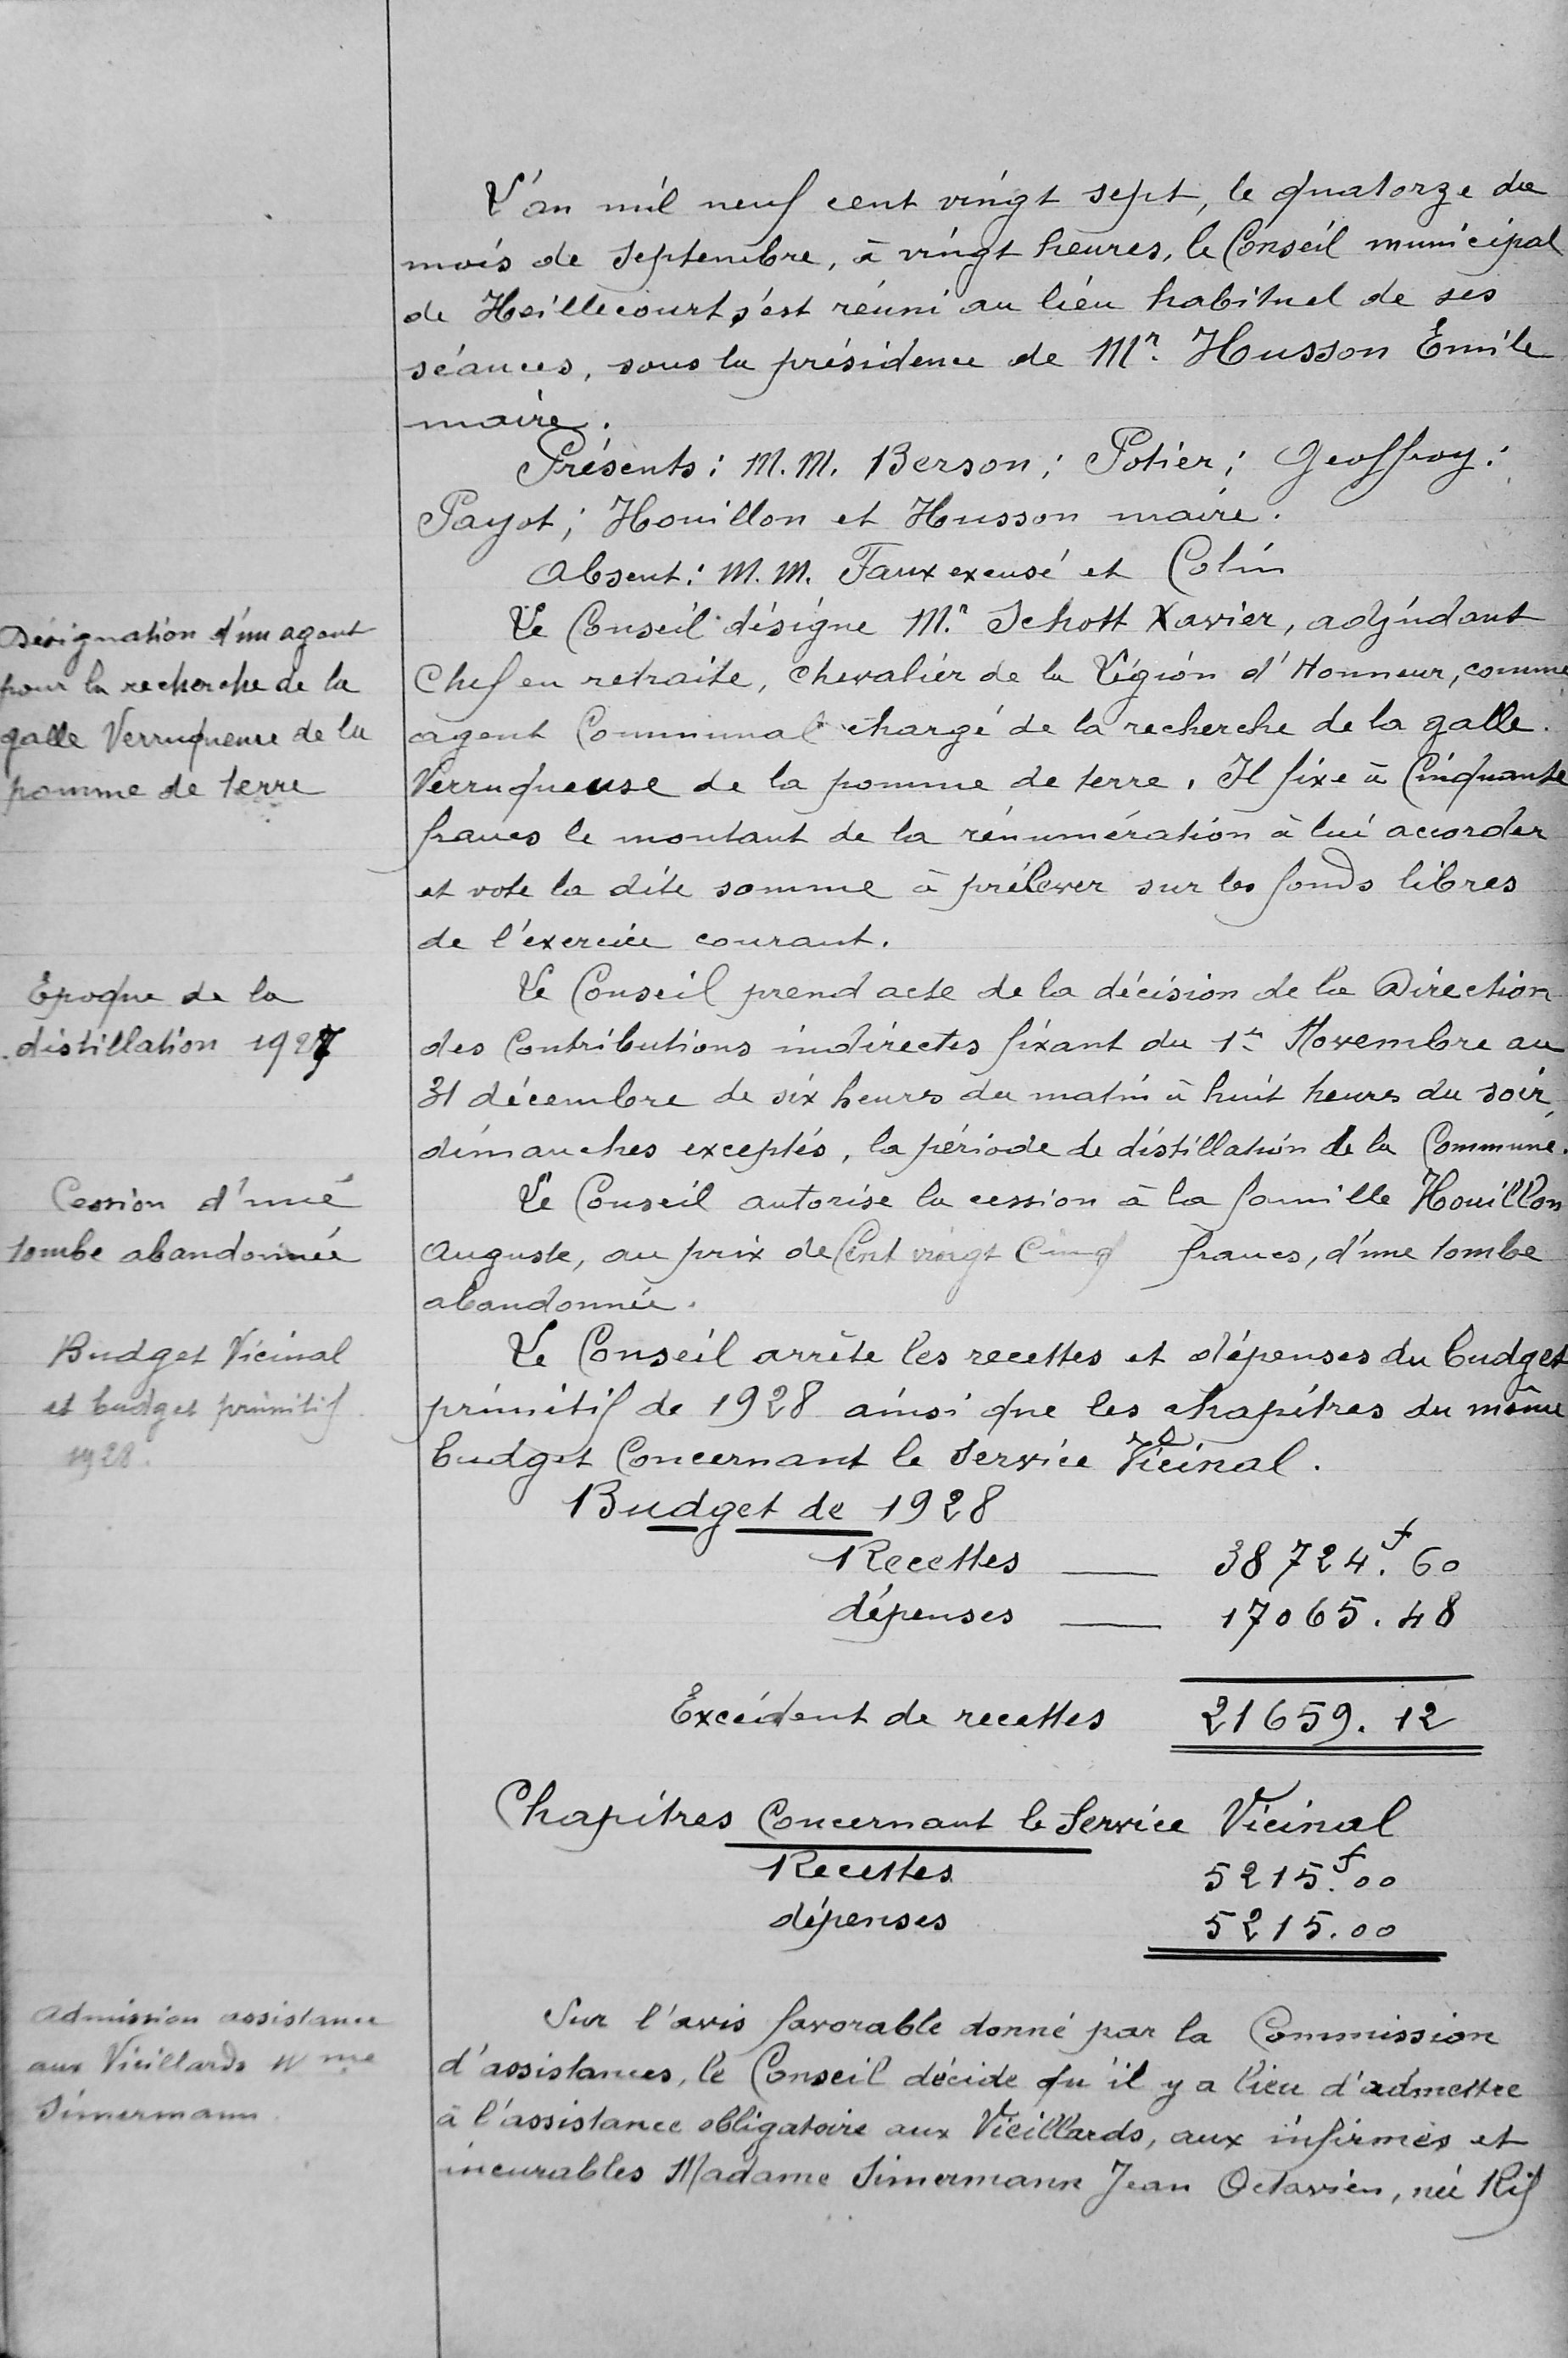 L'an mil neuf cent vingt sept, le quatorze du
mois de Septembre, à vingt heures, le Conseil municipal
de Heillecourt s'est réuni au lieu habituel de ses
séances, sous la présidence de Mr. Husson Emile
maire.
Présents: M.M. Berson; Potier; Geoffroy;
Payot; Houillon et Husson maire.
Absent: M.M. Faux excusé et Colin
Désignation d'un agent
pour la recherche de la
galle Verruqueuse de la
pomme de terre
Le Conseil désigne Mr. Schott Xavier, adjudant
Chef en retraite, Chevalier de la Légion d'Honneur, comme
agent Communal chargé de la recherche de la galle
Verruqueuse de la pomme de terre. Il fixe à Cinquante
francs le montant de la rénumération à lui accorder
et vote la dite somme à prélever sur les fonds libres
de l'exercice courant.
Epoque de la
distillation 1927
Le Conseil prend acte de la décision de la Direction
des Contributions indirectes fixant du 1er Novembre au
31 décembre de six heures du matin à huit heures du soir,
dimanches exceptés, la période de distillation de la Commune.
Cession d'une
tombe abandonnée
Le Conseil autorise la cession à la famille Houillon
Auguste, au prix de Cent vingt Cinq francs, d'une tombe
abandonnée.
Budget Vicinal
et budget primitif
1928.
Le Conseil arrête les recettes et dépenses du budget
primitif de 1928 ainsi que les chapitres du même
budget Concernant le Service Vicinal.
Budget de 1928
Recettes — 38724.f 60
dépenses — 17065.48
Excédent de recettes 21659.12
Chapitres Concernant le Service Vicinal
Recettes 5215.f00
dépenses 5215.00
Admission assistance
aux Vieillards Mme
Simermann
Sur l'avis favorable donné par la Commission
d'assistances, le Conseil décide qu'il y a lieu d'admettre
à l'assistance obligatoire aux Vieillards, aux infirmes et
incurables Madame Simermann Jean Octavien, née Rif